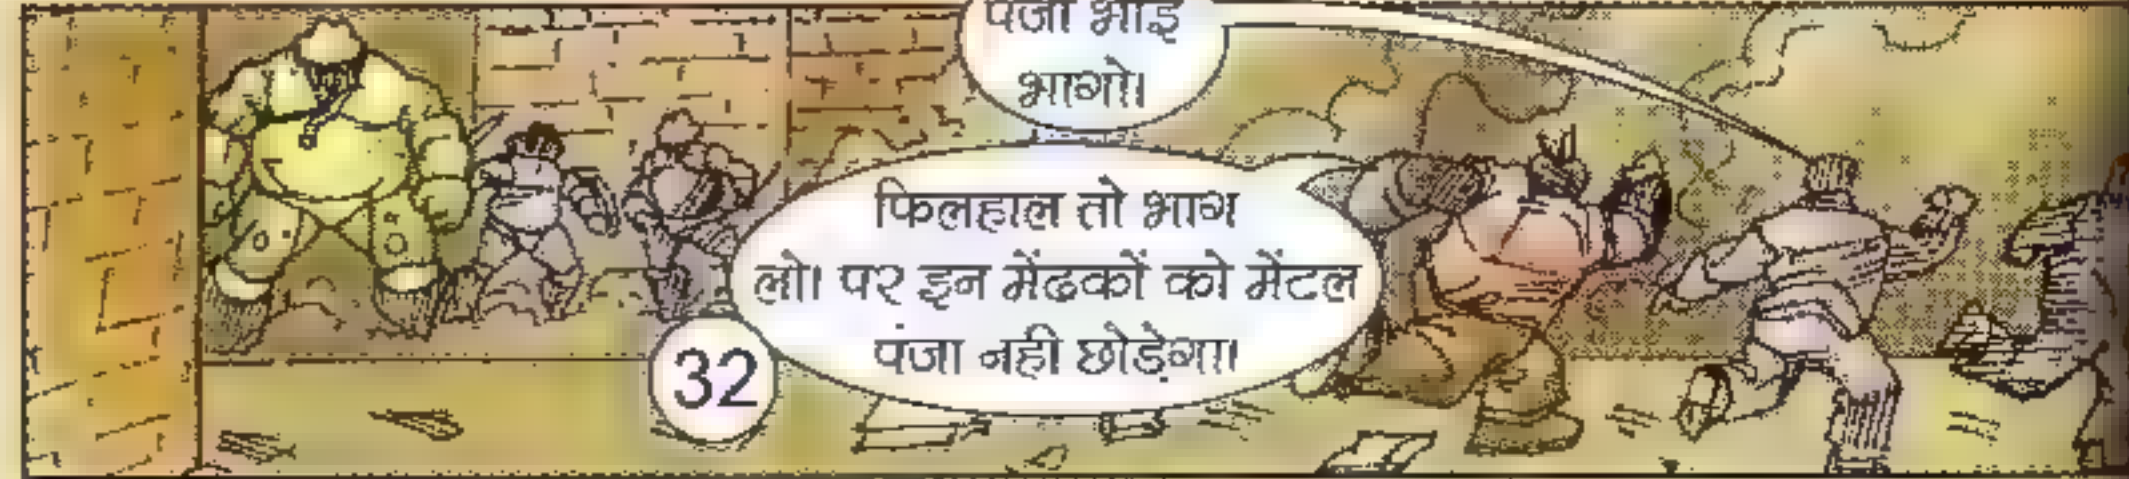 पंजा भाई
भागो।
फिलहाल तो भाग
लो। पर इन मेंढकों को मेंटल
पंजा नही छोड़ेगा।
32